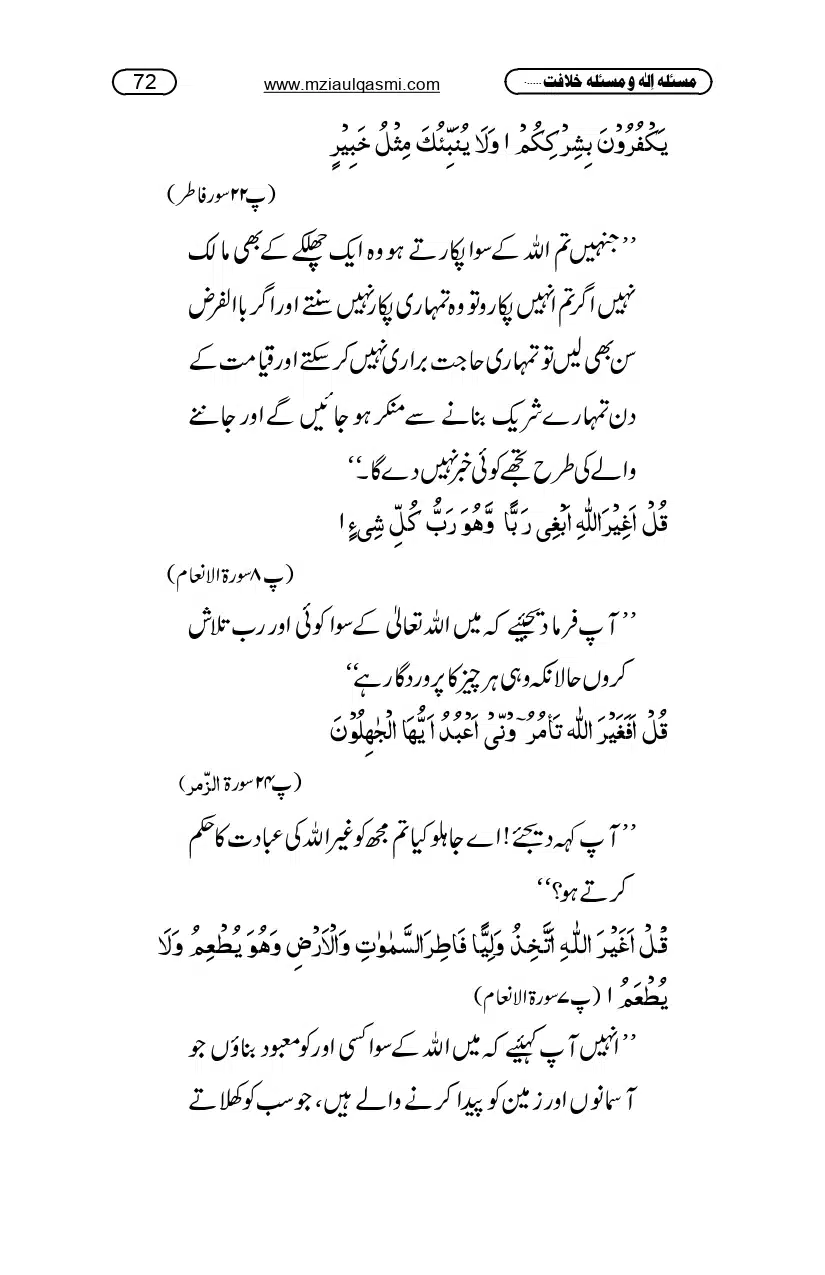 مسئلہ اِلٰہ و مسئلہ خلافت......
www.mziaulqasmi.com
72
يَكْفُرُوْنَ بِشِرْكِكُمْ ا وَلَا يُنَبِّئُكَ مِثْلُ خَبِيْرٍ
(پ۲۲سورفاطر)
’’جنہیں تم اللہ کے سوا پکارتے ہو وہ ایک چھلکے کے بھی مالک
نہیں اگر تم انہیں پکارو تو وہ تمہاری پکار نہیں سنتے اور اگر باالفرض
سن بھی لیں تو تمہاری حاجت براری نہیں کر سکتے اور قیامت کے
دن تمہارے شریک بنانے سے منکر ہو جائیں گے اور جاننے
والے کی طرح تجھے کوئی خبر نہیں دے گا۔‘‘
قُلْ اَغِيْرَاللّٰهِ اَبْغِى رَبًّا وَّهُوَ رَبُّ كُلِّ شِىءٍ ا
(پ۸سورۃ الانعام)
’’آپ فرما دیجئیے کہ میں اللہ تعالیٰ کے سوا کوئی اور رب تلاش
کروں حالانکہ وہی ہر چیز کا پروردگار ہے‘‘
قُلْ اَفَغَيْرَ اللّٰه تَأمُرُوْٓنّىْ اَعْبُدُ اَيُّهَا الْجٰهِلُوْنَ
(پ۲۴سورۃ الزّمر)
’’آپ کہہ دیجئے! اے جاہلو کیا تم مجھ کو غیر اللہ کی عبادت کا حکم
کرتے ہو؟‘‘
قُلْ اَغَيْرَ اللّٰهِ اَتَّخِذُ وَلِيًّا فَاطِرَالسَّمٰوٰتِ وَالْاَرْضِ وَهُوَ يُطْعِمُ وَلَا
يُطْعَمُ ا (پ۷سورۃ الانعام)
’’انہیں آپ کہئیے کہ میں اللہ کے سوا کسی اور کو معبود بناؤں جو
آسمانوں اور زمین کو پیدا کرنے والے ہیں، جو سب کو کھلاتے